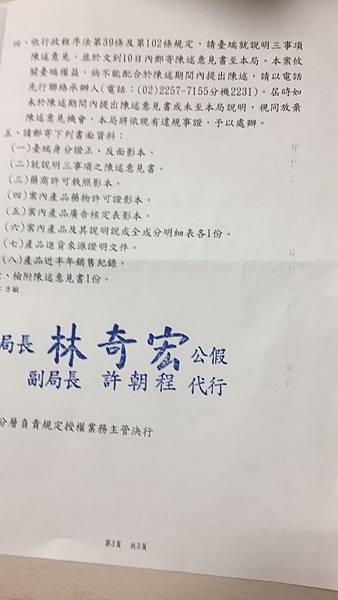 四、依行政程序法第39條及第102條規定，請臺端就說明三事項
陳述意見，並於文到10日內郵寄陳述意見書至本局。本案攸
關臺端權益，倘不能配合於陳述期間內提出陳述，請以電話
先行聯絡承辦人(電話：(02)2257-7155分機2231)。屆時如
未於陳述期間內提出陳述意見書或未至本局說明，視同放棄
陳述意見機會，本局將依現有違規事證，予以處辦。
五、請郵寄下列書面資料：
(一)臺端身分證正、反面影本。
(二)就說明三事項之陳述意見書。
(三)藥商許可執照影本。
(四)案內產品藥物許可證影本。
(五)案內產品廣告核定表影本。
(六)案內產品及其說明說或全成分明細表各1份。
(七)產品進貨來源證明文件。
(八)產品近半年銷售紀錄。
、檢附陳述意見書1份。
方敏
局長 林奇宏 公假
副局長 許朝程 代行
分層負責規定授權業務主管決行
第3頁 共3頁